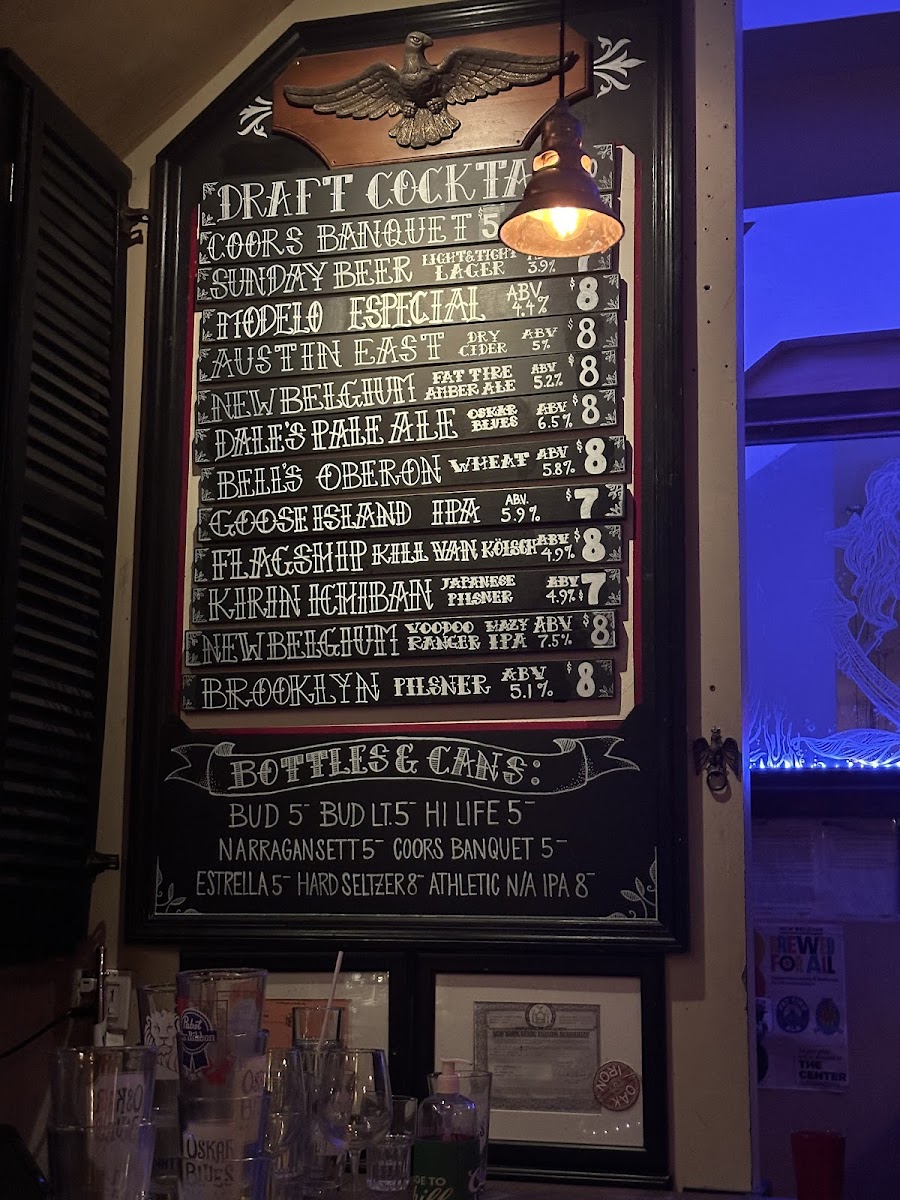 DRAFT COCKTA
COORS BANQUET $5
SUNDAY BEER LIGHT & TIGHT LAGER 3.9%
MODELO ESPECIAL ABV. 4.4% $8
AUSTIN EAST DRY CIDER ABV 5% $8
NEW BELGIUM FAT TIRE AMBER ALE ABV 5.2% $8
DALE'S PALE ALE OSKAR BLUES ABV 6.5% $8
BELL'S OBERON WHEAT ABV 5.8% $8
GOOSE ISLAND IPA ABV. 5.9% $7
FLAGSHIP KILL VAN KÖLSCH ABV 4.9% $8
KIRIN ICHIBAN JAPANESE PILSNER ABV 4.9% $7
NEW BELGIUM VOODOO RANGER HAZY IPA ABV 7.5% $8
BROOKLYN PILSNER ABV. 5.1% $8
BOTTLES & CANS:
BUD 5- BUD LT. 5- HI LIFE 5-
NARRAGANSETT 5- COORS BANQUET 5-
ESTRELLA 5- HARD SELTZER 8- ATHLETIC N/A IPA 8-
BREWED
FOR ALL
THE
CENTER
Pabst
OSKAR
BLUES
IRON
OAK